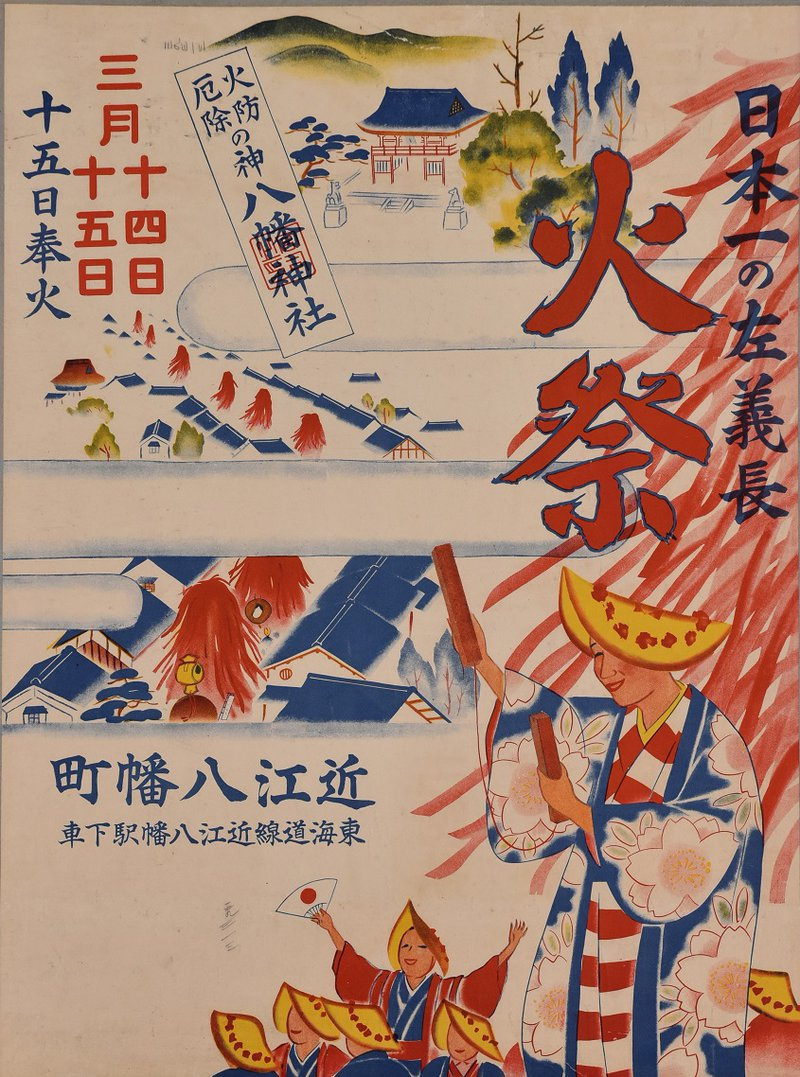 日本一の左義長
火祭
火防の神
厄除
八幡神社
三月十四日
十五日
十五日奉火
近江八幡町
東海道線近江八幡駅下車